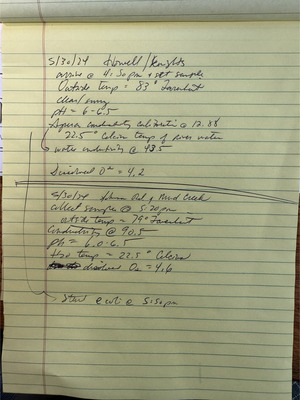 5/30/24 Howell/Knights
arrive @ 4:30pm + get sample
Outside temp = 83° Farenheit
clear/sunny
pH = 6-6.5
conductivity calibration @ 12.88
22.5° Celcius temp of river water
water conductivity @ 43.5
Dissolved O² = 4.2
5/30/24 Rd & Mud Creek
collect samples @ 5:20pm
outside temp = 79° Farenheit
Conductivity @ 90.5
pH = 6.0-6.5
H2O temp = 22.5° Celcius
dissolved O2 = 4.6
Start e coli @ 5:50pm